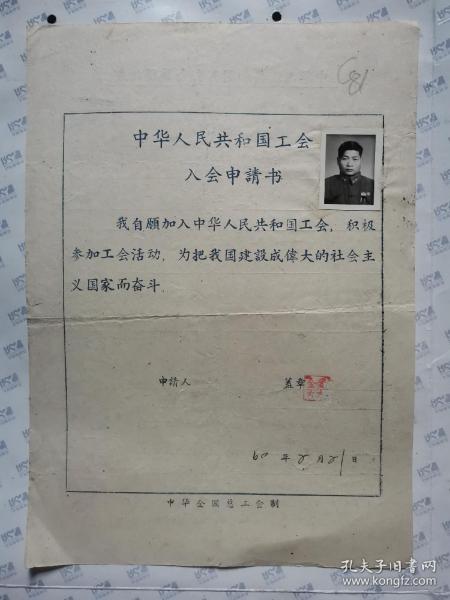 C81
中华人民共和国工会
入会申請书
我自願加入中华人民共和国工会，积极
参加工会活动，为把我国建設成偉大的社会主
义国家而奋斗.
申請人 盖章
60年2月21日
中华全国总工会制
孔夫子旧书网
www.kongfz.com